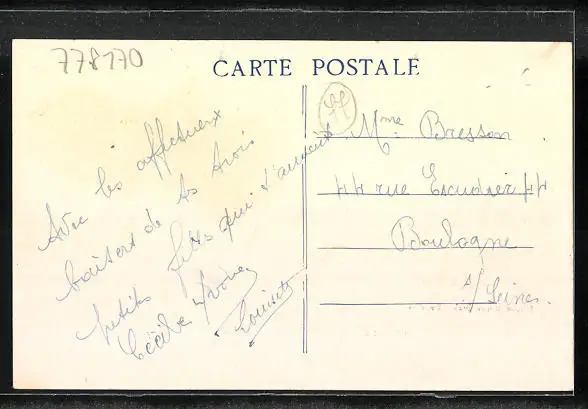 778170
CARTE POSTALE
Avec les affectueux
baisers de tes trois
petites filles qui t'aiment
Cécile Yvonne
Louisette
Mme Bresson
44 rue Escudier 44
Boulogne
s/Seine.